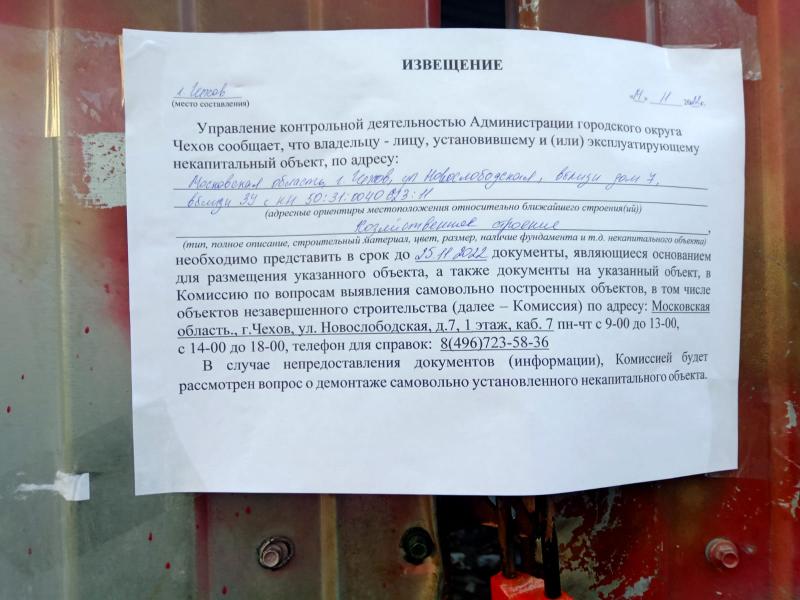 ИЗВЕЩЕНИЕ
г. Чехов
(место составления)
11
Управление контрольной деятельностью Администрации городского округа
Чехов сообщает, что владельцу - лицу, установившему и (или) эксплуатирующему
некапитальный объект, по адресу:
Московская область, г. Чехов, ул Новослободская, вблизи дом 7,
вблизи ЗУ с КН
(адресные ориентиры местоположения относительно ближайшего строения(ий))
Хозяйственное строение,
(тип, полное описание, строительный материал, цвет, размер, наличие фундамента и т.д. некапитального объекта)
необходимо представить в срок до 25.11.2022 документы, являющиеся основанием
для размещения указанного объекта, а также документы на указанный объект, в
Комиссию по вопросам выявления самовольно построенных объектов, в том числе
объектов незавершенного строительства (далее – Комиссия) по адресу: Московская
область., г.Чехов, ул. Новослободская, д.7, 1 этаж, каб. 7 пн-чт с 9-00 до 13-00,
с 14-00 до 18-00, телефон для справок: 8(496)723-58-36
В случае непредоставления документов (информации), Комиссией будет
рассмотрен вопрос о демонтаже самовольно установленного некапитального объекта.